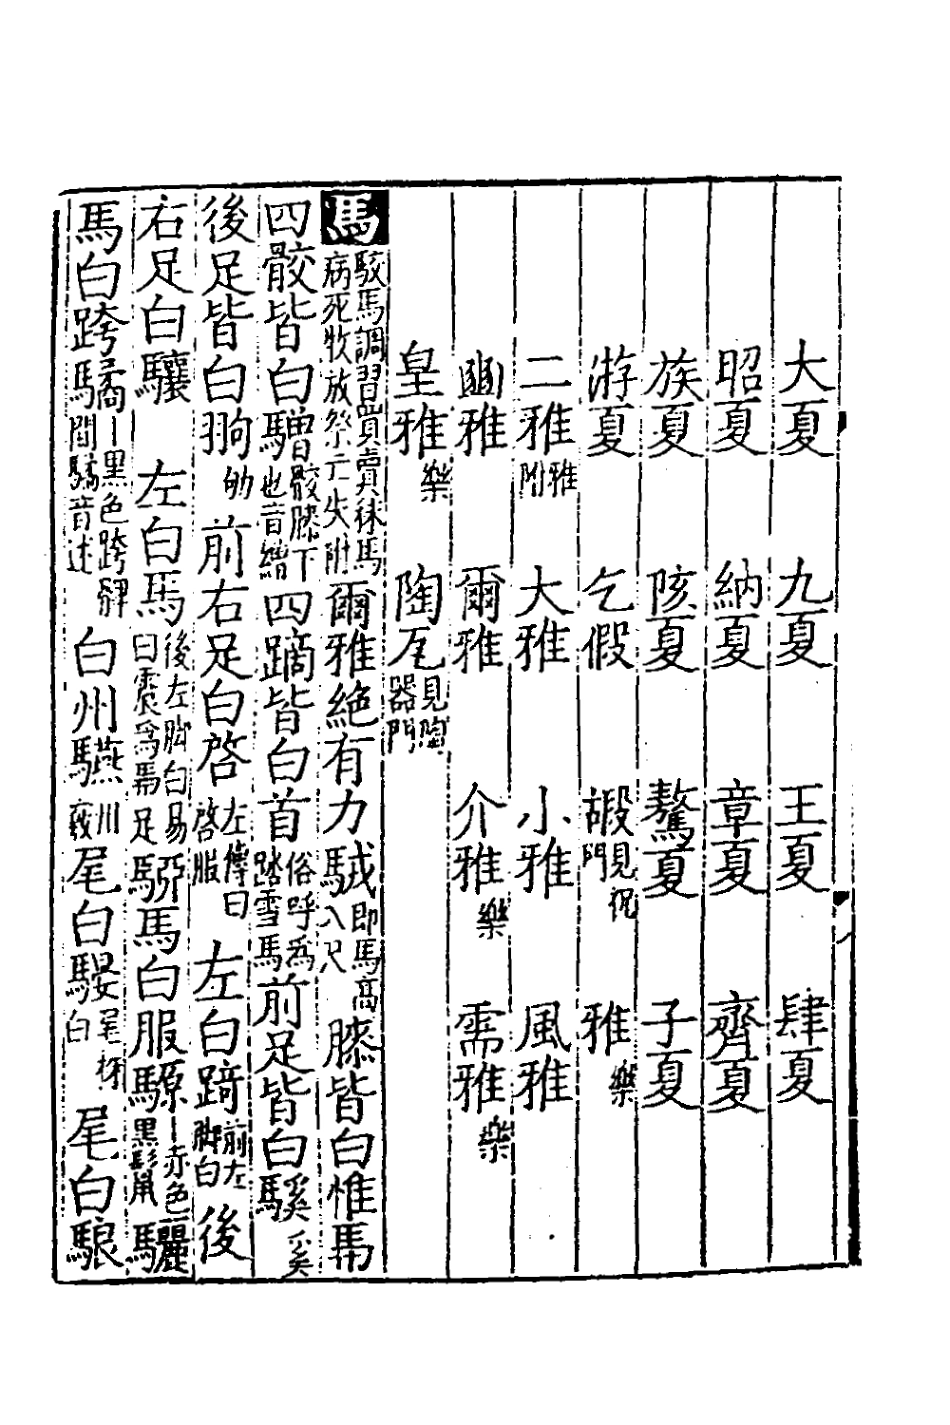 大夏 九夏 王夏 肆夏
昭夏 納夏 章夏 齊夏
族夏 陔夏 驁夏 子夏
游夏 乞假 嘏見祝門 雅樂
二雅雅附 大雅 小雅 風雅
豳雅 爾雅 介雅樂 需雅樂
皇雅樂 陶瓦見陶器門
馬駁馬調習買賣秣馬病死牧放祭亡失附爾雅絶有力駥即馬高八尺膝皆白惟馵
四骹皆白驓骹膝下也音繒四蹢皆白首俗呼爲踏雪馬前足皆白騱奚
後足皆白翑劬前右足白啓左傳曰啓服左白踦前左脚白後
右足白驤 左白馵後左脚白易曰震爲馵足駵馬白腹騵一赤色黑鬣驪
馬白跨驈一黑色跨髀間驈音述白州驠州竅尾白騴尾株白尾白駺